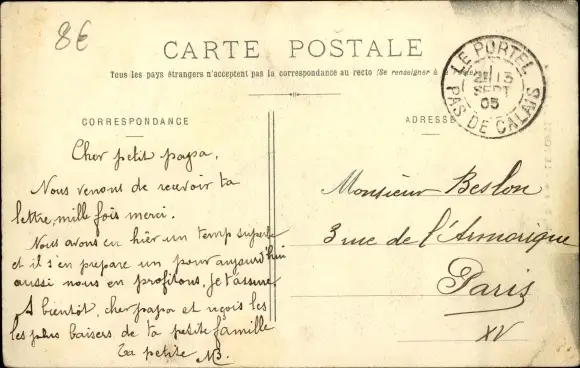 8€
CARTE POSTALE
Tous les pays étrangers n'acceptent pas la correspondance au recto (Se renseigner à
LE PORTEL
13
SEPT
05
PAS DE CALAIS
CORRESPONDANCE
ADRESSE
Cher petit papa,
Nous venont de recevoir ta
lettre, mille fois merci.
Nous avons eu hier un temps superbe
et il s'en prepare un pour aujourd'hui
aussi nous en profitons, je t'assure
A bientôt, cher papa et reçois les
les plus baisers de ta petite famille
Ta petite
Monsieur Beslon
3 rue de l'Armorique
Paris
XV